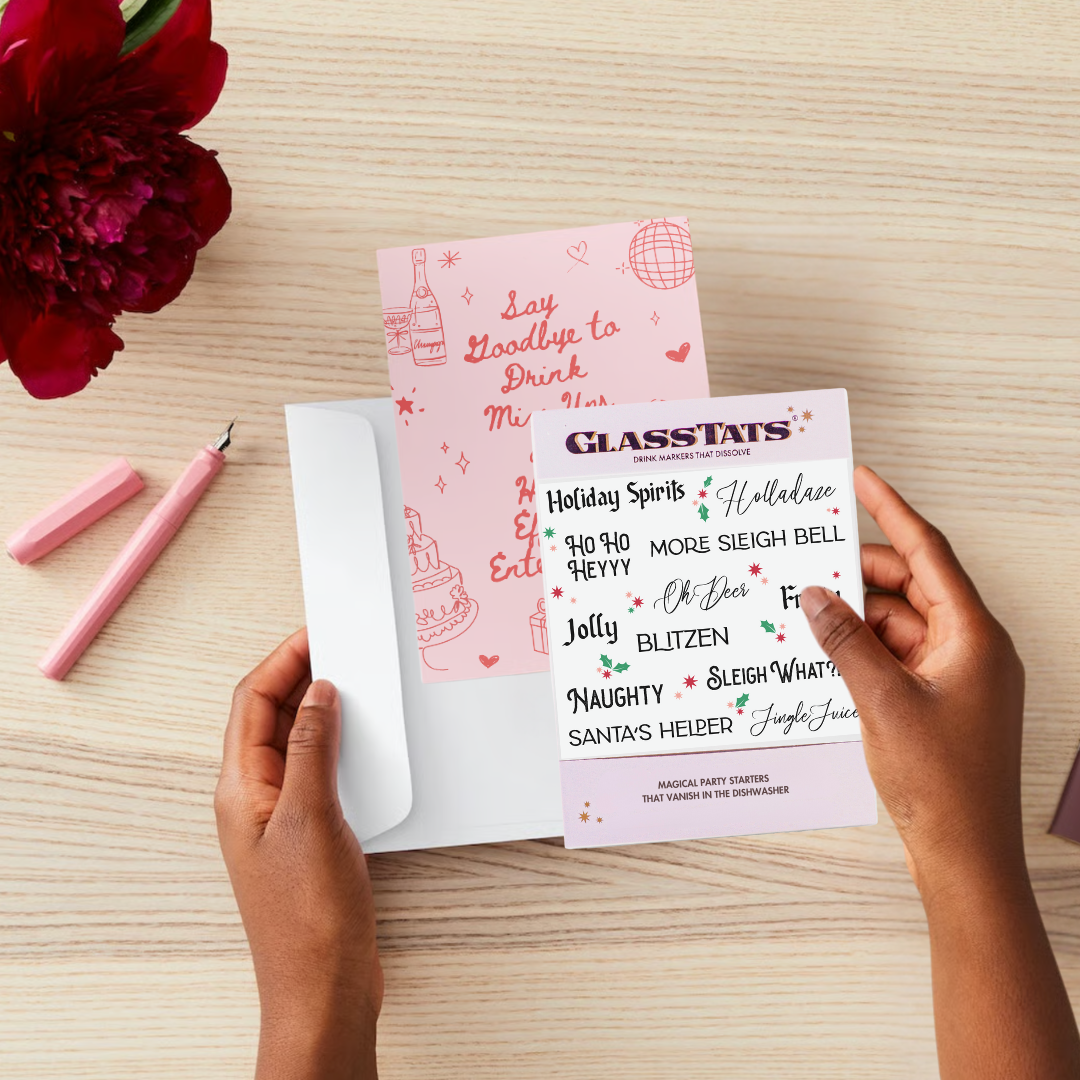 Say
Goodbye to
Drink
GLASSTATS®
DRINK MARKERS THAT DISSOLVE
Holiday Spirits
Holladaze
Ho Ho
Heyyy
MORE SLEIGH BELL
Oh Deer
Jolly
BLITZEN
Naughty
Sleigh What?!
SANTA'S HELPER
Jingle Juice
MAGICAL PARTY STARTERS
THAT VANISH IN THE DISHWASHER